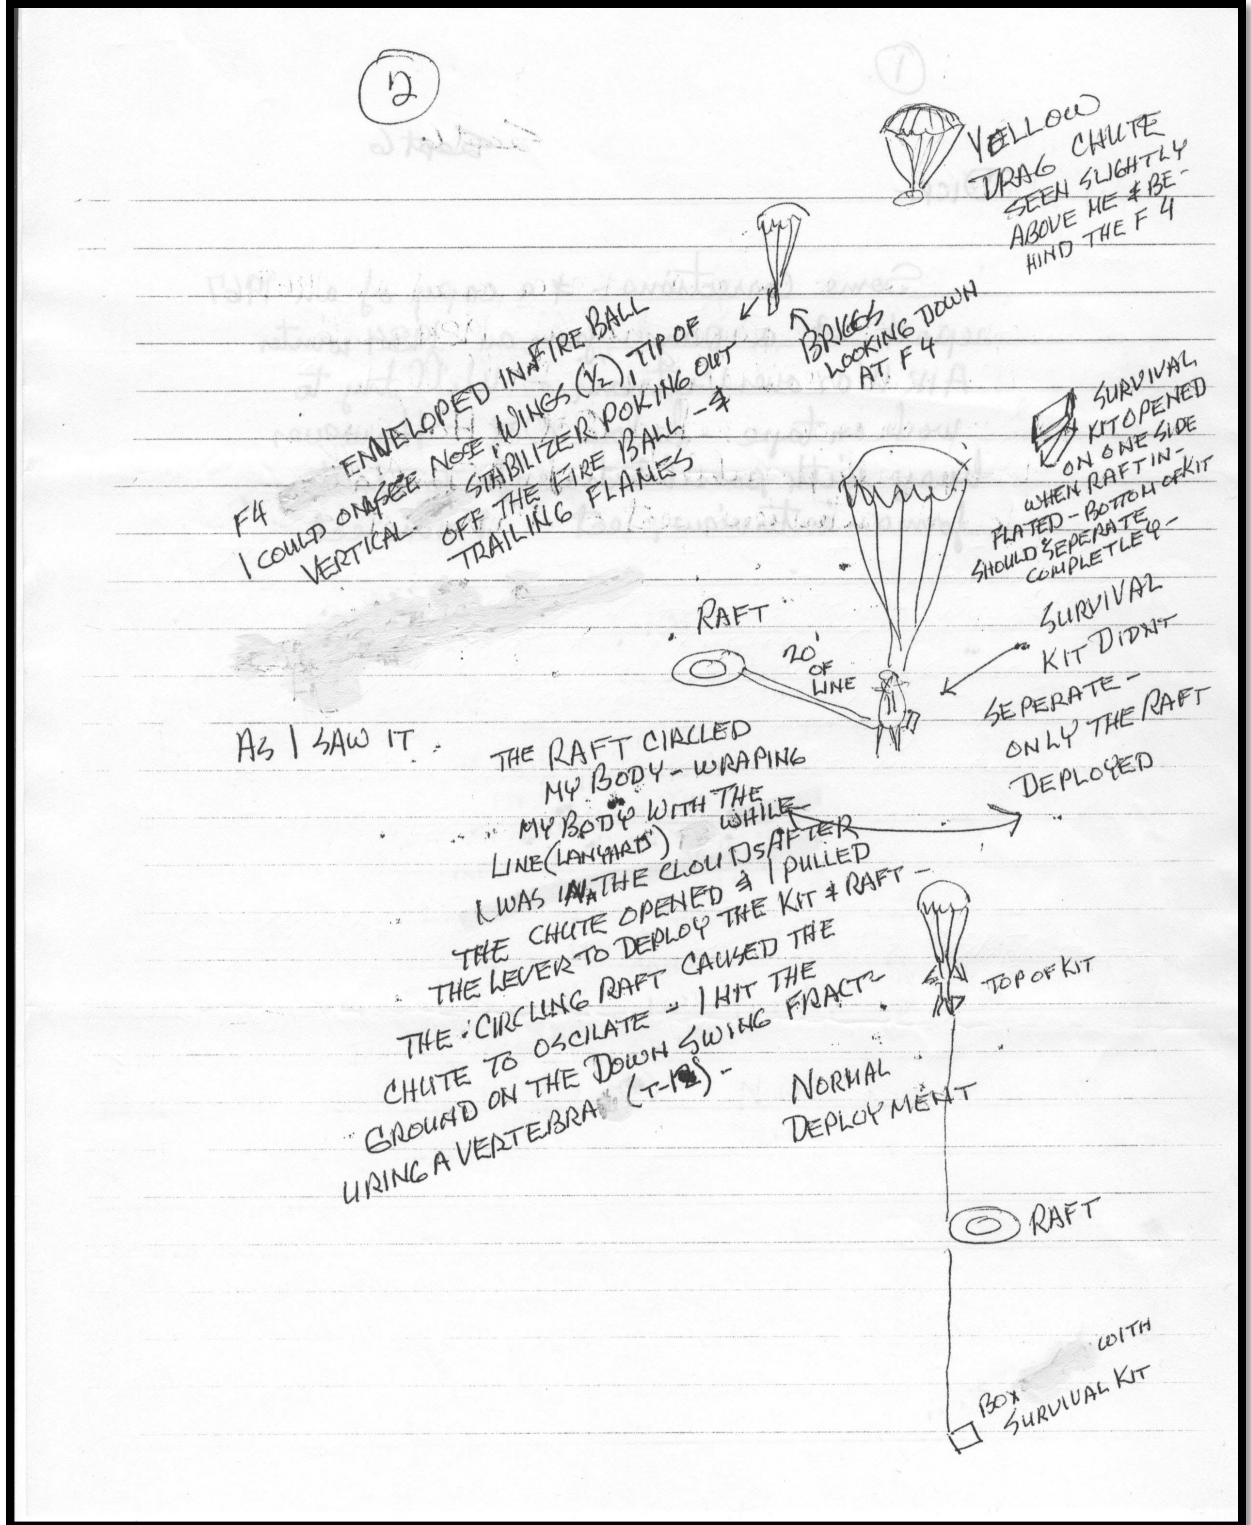 2
YELLOW
DRAG CHUTE
SEEN SLIGHTLY
ABOVE ME & BE-
HIND THE F 4
BRIGGS
LOOKING DOWN
AT F 4
F4 ENVELOPED IN FIRE BALL
I COULD ONLY SEE NOSE, WINGS (1/2), TIP OF
VERTICAL STABILIZER POKING OUT
OFF THE FIRE BALL - &
TRAILING FLAMES
SURVIVAL
KIT OPENED
ON ONE SIDE
WHEN RAFT IN-
FLATED - BOTTOM OF KIT
SHOULD SEPERATE
COMPLETLEY -
RAFT
20'
OF
LINE
SURVIVAL
KIT DIDNT
SEPERATE -
ONLY THE RAFT
DEPLOYED
AS I SAW IT
THE RAFT CIRCLED
MY BODY - WRAPING
MY BODY WITH THE
LINE (LANYARD) WHILE
I WAS IN THE CLOUDS AFTER
THE CHUTE OPENED & I PULLED
THE LEVER TO DEPLOY THE KIT & RAFT -
THE CIRCLING RAFT CAUSED THE
CHUTE TO OSCILATE - I HIT THE
GROUND ON THE DOWN SWING FRACT-
URING A VERTEBRA (T-12) -
TOP OF KIT
NORMAL
DEPLOYMENT
RAFT
BOX WITH
SURVIVAL KIT